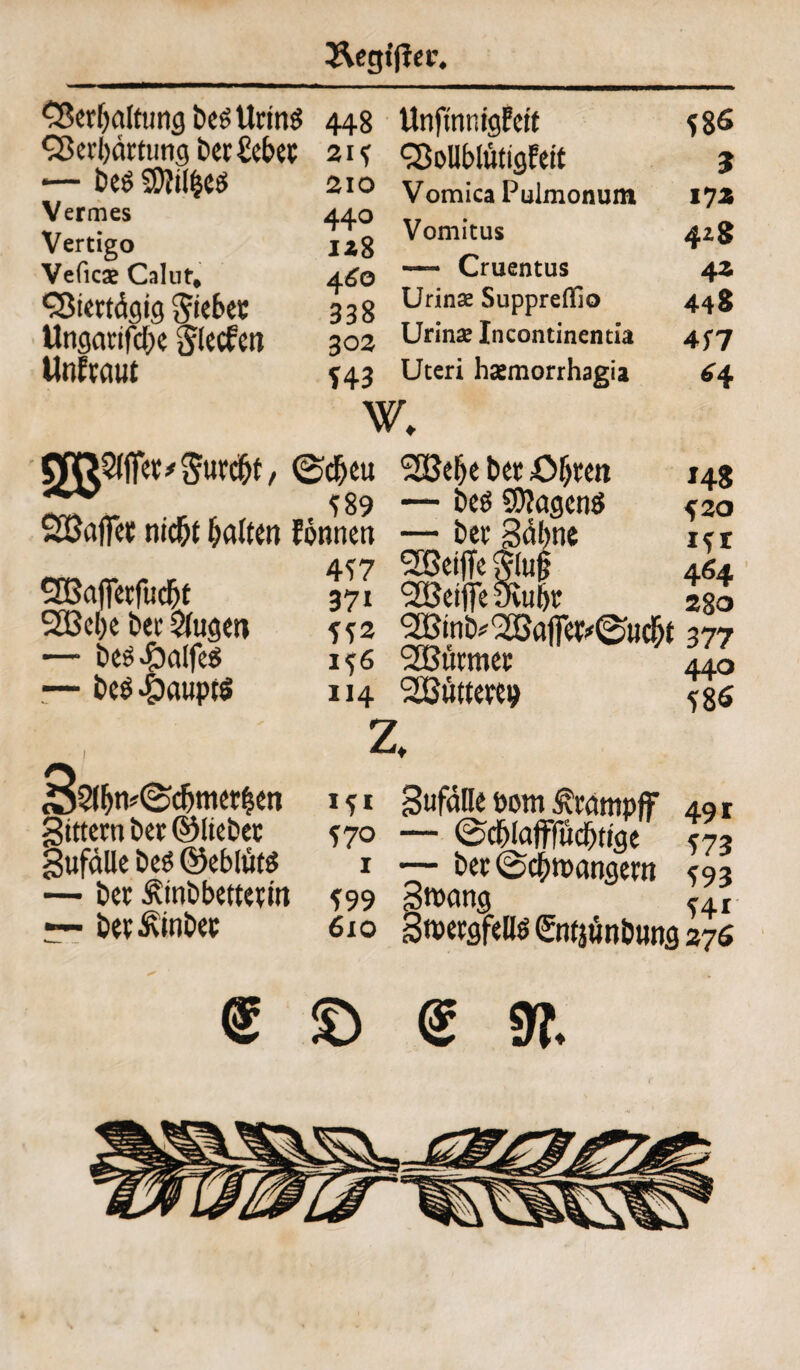 Register.
Verhaltung des Urins 448
Verhärtung der Leber 215
— des Milhes 210
Vermes 440
Vertigo 128
Vesicæ Calut. 460
Viertägig Fieber 338
Ungarische Flecken 302
Unkraut 543
Unsinnigkeit 586
Vollblütigkeit 3
Vomica Pulmonum 172
Vomitus 428
— Cruentus 42
Urinæ Suppressio 448
Urinæ Incontinentia 457
Uteri hæmorrhagia 64
W.
WAsser-Furcht, Scheu
589
Wasser nicht halten können
457
Wassersucht 371
Wehe der Augen 552
— des Halses 156
— des Haupts 114
Wehe der Ohren 148
— des Magens 520
— der Zähne 151
Weisse Fluß 464
Weisse Ruhr 280
Wind-Wasser-Sucht 377
Würmer 440
Wütterey 586
Z.
ZAhn-Schmertzen 151
Zittern der Glieder 570
Zufälle des Geblüts 1
— der Kindbetterin 599
— der Kinder 610
Zufälle vom Krampff 491
— Schlaffsüchtige 573
— der Schwangern 593
Zwang 541
Zwergfells Entzündung 276
E N D E N.